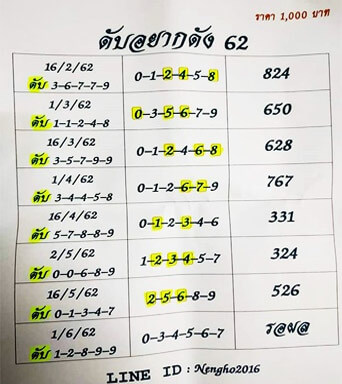 ราคา 1,000 บาท
ดับอยากดัง 62
16/2/62
ดับ 3-6-7-7-9
0-1-2-4-5-8
824
1/3/62
ดับ 1-1-2-4-8
0-3-5-6-7-9
650
16/3/62
ดับ 3-5-7-9-9
0-1-2-4-6-8
628
1/4/62
ดับ 3-4-4-5-8
0-1-2-6-7-9
767
16/4/62
ดับ 5-7-8-8-9
0-1-2-3-4-6
331
2/5/62
ดับ 0-0-6-8-9
1-2-3-4-5-7
324
16/5/62
ดับ 0-1-3-4-7
2-5-6-8-9
526
1/6/62
ดับ 1-2-8-9-9
0-3-4-5-6-7
รอผล
LINE ID : Nengho2016